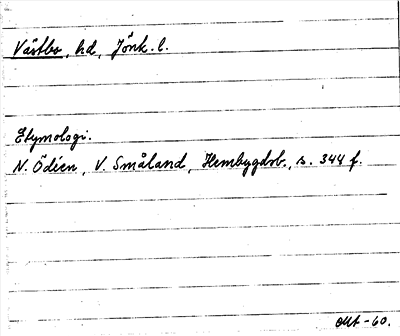 Västbo, hd, Jönk. l.
Etymologi.
N. Ödéen, V. Småland, Hembygdsb., s. 344 f.
okt -60.